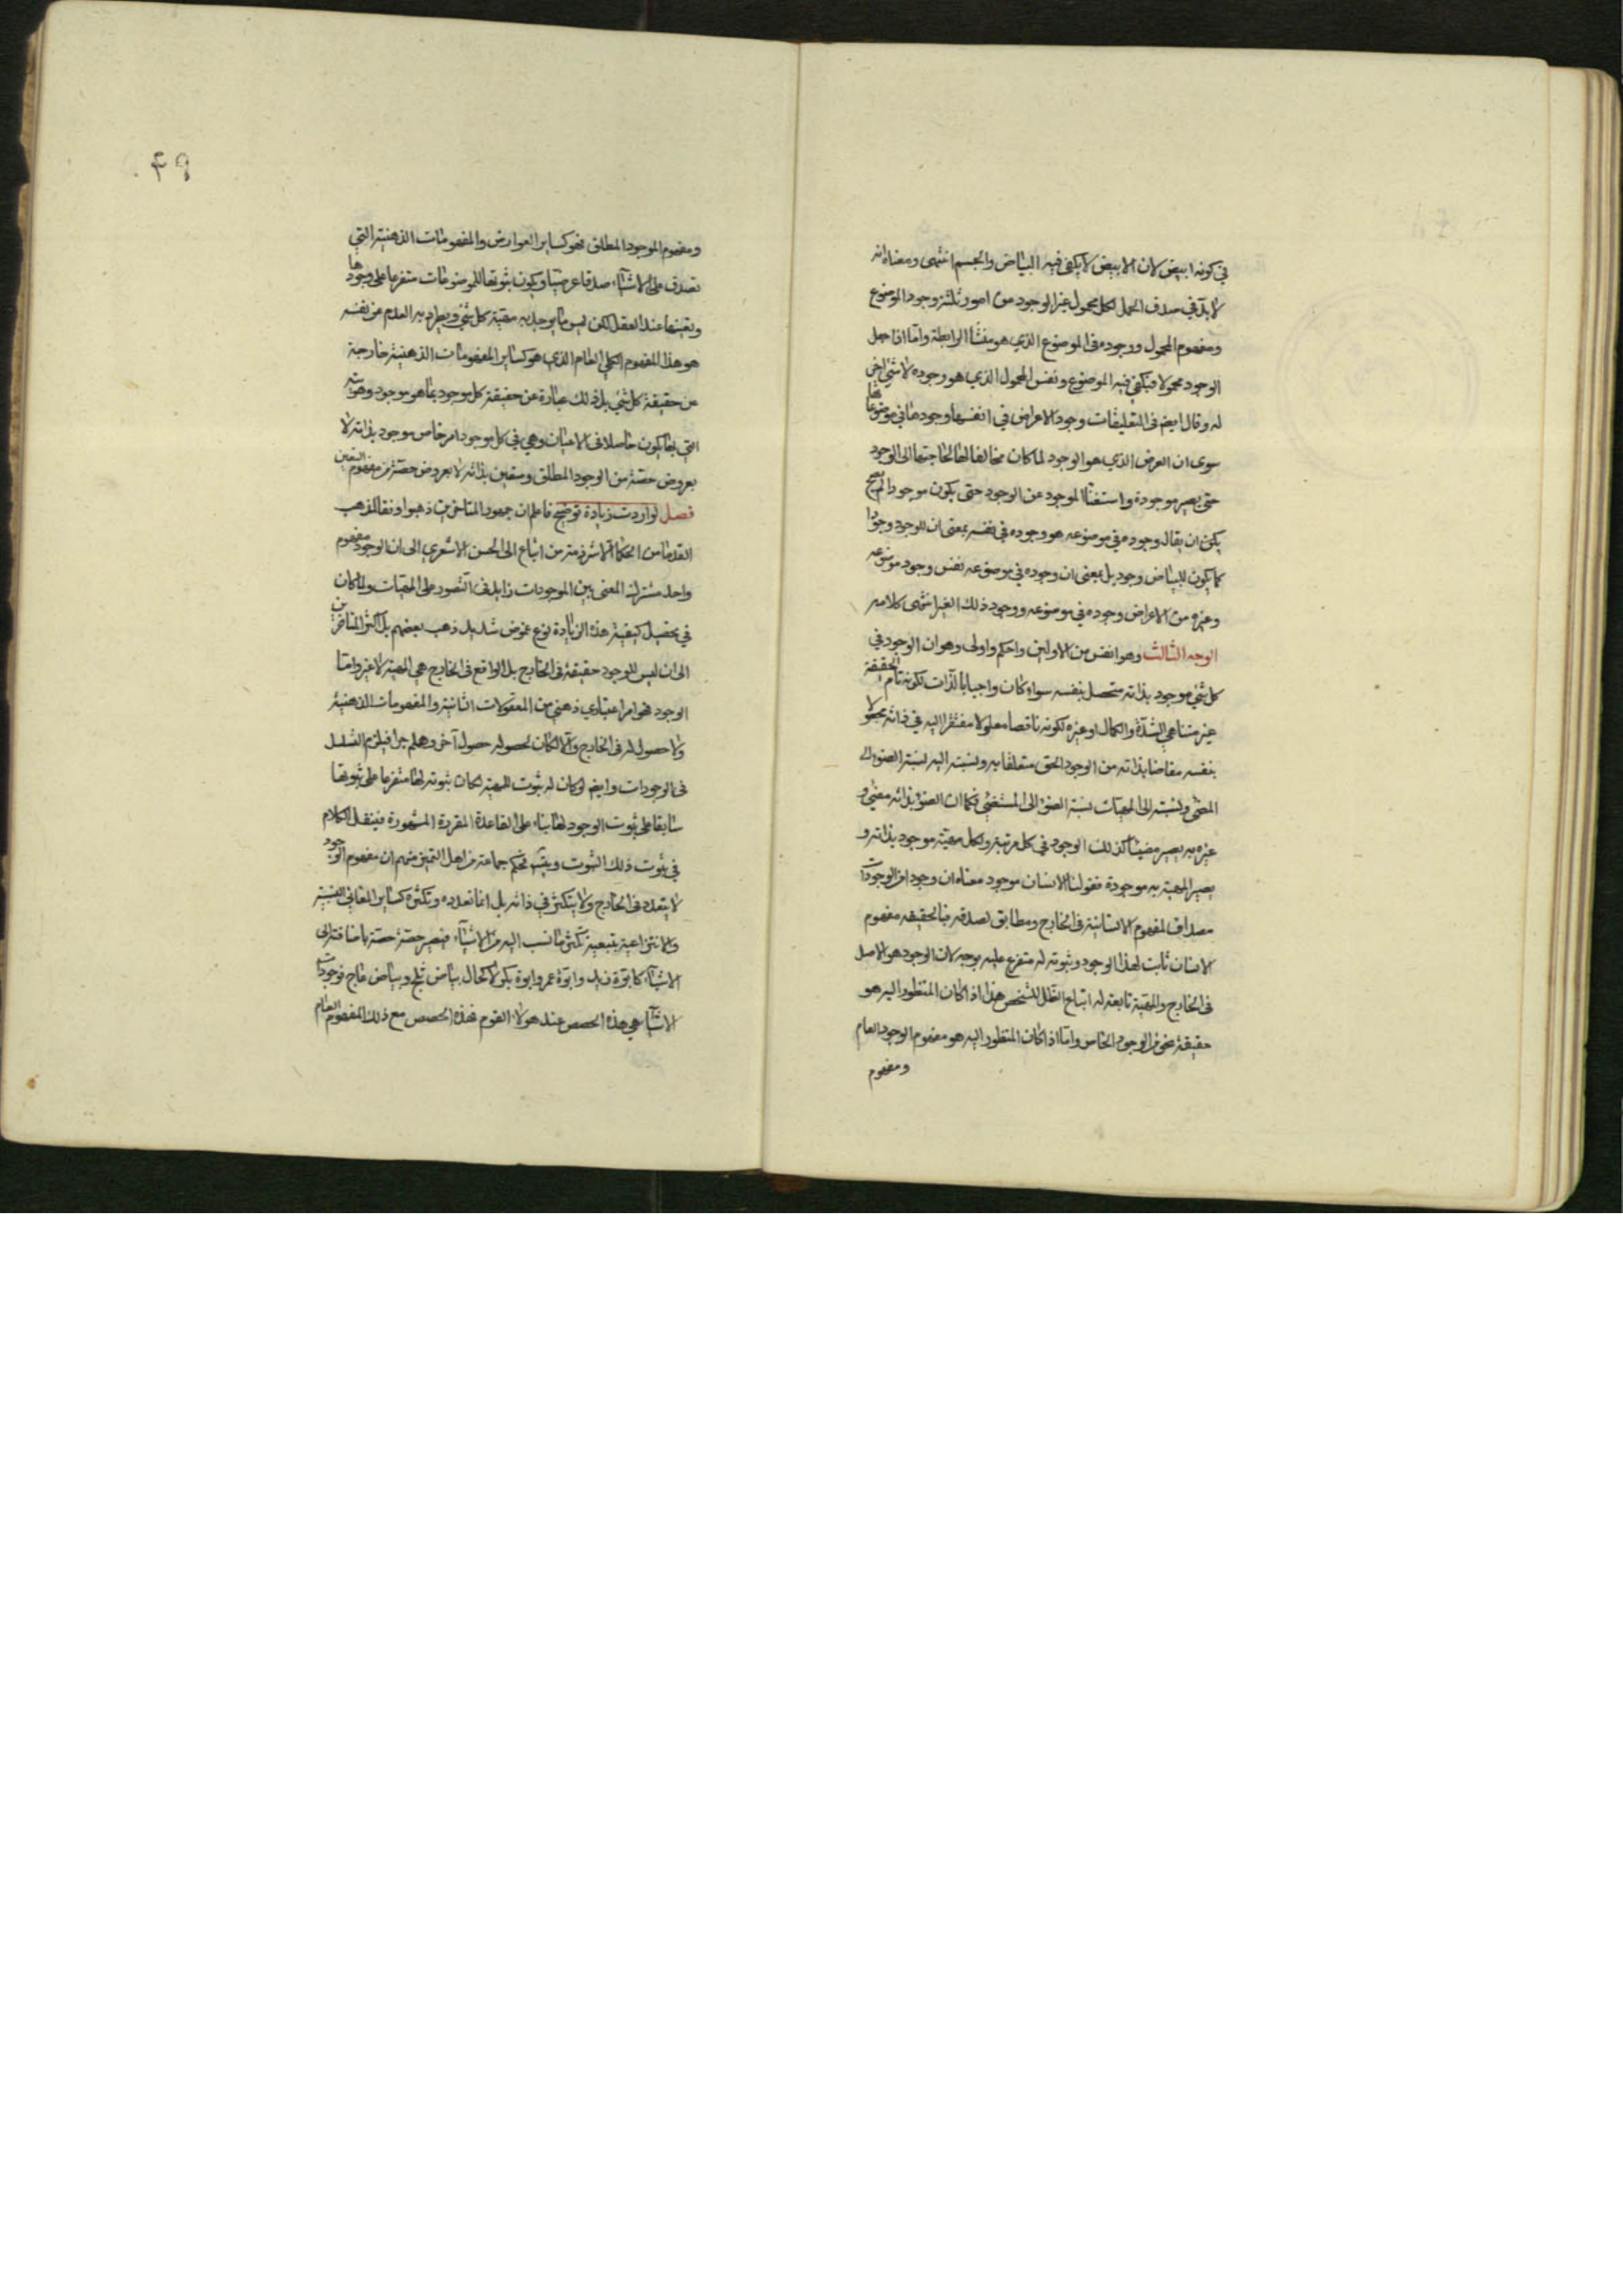 في كونه ابيض لان الابيض لا يكفي فيه البياض والجسم انتهى ومعناه انه
لا بد في صدق الحمل لكل محمول غير الوجود من امور ثلثة وجود الموضوع
ومفهوم المحمول ووجوده في الموضوع الذي هو منشأ الرابطة واما اذا جعل
الوجود محمولا فيكفي فيه الموضوع ونفس المحمول الذي هو وجوده لا شيء اخر
له وقال ايضا في التعليقات وجود الاعراض في انفسها وجودها في موضوعاتها
سوى ان العرض الذي هو الوجود لما كان مخالفا لها لحاجتها الى الوجود
حتى يصير موجودة واستغناء الموجود عن الوجود حتى يكون موجودا لم يصح
يكن ان يقال وجوده في موضوعه هو وجوده في نفسه بمعنى ان للوجود وجودا
كما يكون للبياض وجود بل بمعنى ان وجوده في موضوعه نفس وجود موضوعه
وغيره من الاعراض وجوده في موضوعه ووجود ذلك الغير انتهى كلامه
الوجه الثالث وهو انفس من الاولين واحكم واولى وهو ان الوجود في
كل شيء موجود بذاته متحصل بنفسه سواء كان واجبا بالذات لكونه تام الحقيقة
غير متناهي الشدة والكمال او غيره لكونه ناقصا معلولا مفتقرا اليه في ذاته مجعولا
بنفسه مفاضا بذاته من الوجود الحق متعلقا به ونسبته اليه نسبة الضوء الى
المضئ ونسبته الى المهيات نسبة الضوء الى المستضئ فكما ان الضوء بذاته مضئ و
غيره به يصير مضيئا كذلك الوجود في كل مرتبة ولكل مهية موجود بذاته و
يصير المهية به موجودة فقولنا الانسان موجود معناه ان وجودا من الوجودات
مصداق لمفهوم الانسانية في الخارج ومطابق لصدقه فبالحقيقة مفهوم
الانسان ثابت لهذا الوجود وثبوته له متفرع عليه بوجه لان الوجود هو الاصل
في الخارج والمهية تابعة له اتباع الظل للشخص هذا اذا كان المنظور اليه هو
حقيقة نحو من الوجود الخاص واما اذا كان المنظور اليه هو مفهوم الوجود العام
ومفهوم
٤٩
ومفهوم الموجود المطلق فهو كساير العوارض والمفهومات الذهنية التي
تصدق على الاشياء صدقا عرضيا ويكون ثبوتها للموضوعات متفرعا على وجودها
وتعينها عند العقل لكن ليس ما يوجد به مهية كل شيء ويطرد به العدم عن نفسه
هو هذا المفهوم الكلي العام الذي هو كساير المفهومات الذهنية خارجة
عن حقيقة كل شيء بل ذلك عبارة عن حقيقة كل موجود بما هو موجود وهويته
التي بها يكون حاصلا في الاعيان وهي في كل موجود امر خاص موجود بذاته لا
بعروض حصة من الوجود المطلق ومتعين بذاته لا بعروض حصة من مفهوم التعين
فصل لو اردت زيادة توضيح فاعلم ان جمهور المتاخرين ذهبوا وفقا لمذهب
القدماء من الحكماء الا شرذمة من اتباع ابي الحسن الاشعري الى ان الوجود مفهوم
واحد مشترك المعنى بين الموجودات زايد في التصور على المهيات ولما كان
في تحصيل كيفية هذه الزيادة نوع غموض شديد ذهب بعضهم بل اكثر المتاخرين
الى ان ليس للوجود حقيقة في الخارج بل الواقع في الخارج هي المهية لا غير واما
الوجود فهو امر اعتباري ذهني من المعقولات الثانية والمفهومات الذهنية
ولا حصول له في الخارج والا لكان لحصوله حصول آخر وهلم جرا فيلزم التسلسل
في الوجودات وايضا لو كان له ثبوت للمهية لكان ثبوته لها متفرعا على ثبوتها
سابقا على ثبوت الوجود لها بناء على القاعدة المقررة المشهورة فينقل الكلام
في ثبوت ذلك الثبوت ويتس فحكم جماعة من اهل التميز منهم ان مفهوم الوجود
لا يتعدد في الخارج ولا يتكثر في ذاته بل انما تعدده وتكثره كساير المعاني النسبية
والانتزاعية بتبعية تكثر ما نسب اليه من الاشياء فيصير حصة حصة باضافته الى
الاشياء كابوة زيد وابوة عمرو وابوة بكر لا كحال بياض ثلج وبياض عاج فوجودات
الاشياء هي هذه الحصص عند هولاء القوم فهذه الحصص مع ذلك المفهوم العام